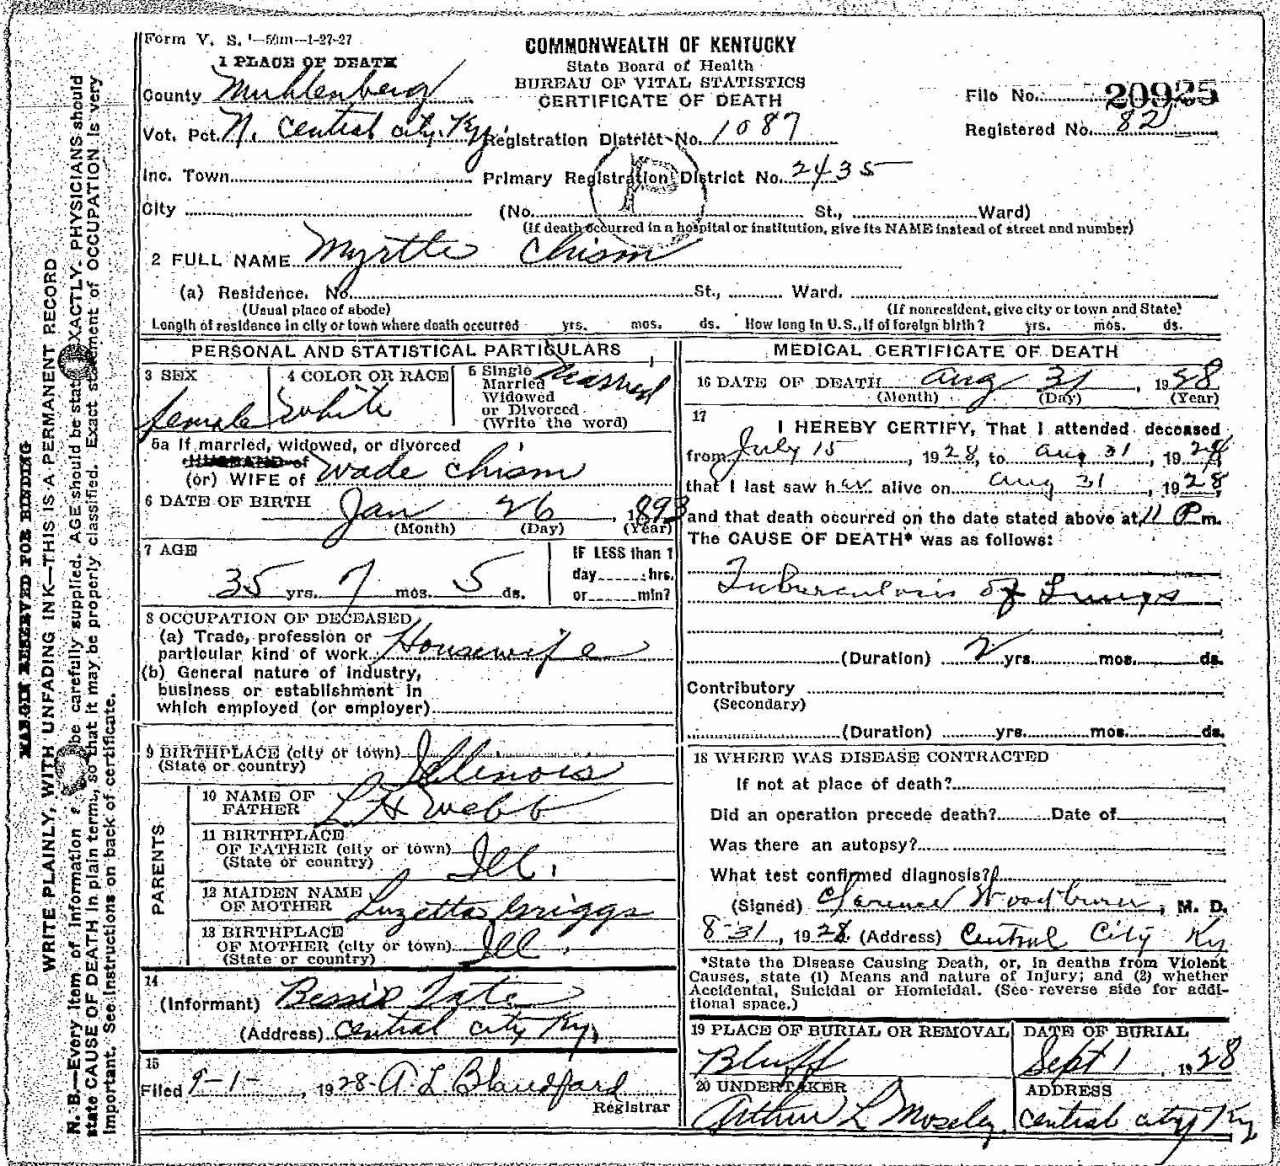 Form V. S. 1—50m—1-27-27
COMMONWEALTH OF KENTUCKY
State Board of Health
BUREAU OF VITAL STATISTICS
CERTIFICATE OF DEATH
1 PLACE OF DEATH
County Muhlenberg
File No. 20925
Vot. Pct. N. Central City, Ky. Registration District No. 1087
Registered No. 82
Inc. Town Primary Registration District No. 2435
P
City (No. St., Ward)
(If death occurred in a hospital or institution, give its NAME instead of street and number)
2 FULL NAME Myrtle Chism
(a) Residence. No. St., Ward.
(Usual place of abode) (If nonresident, give city or town and State)
Length of residence in city or town where death occurred yrs. mos. ds. How long in U.S., if of foreign birth? yrs. mos. ds.
PERSONAL AND STATISTICAL PARTICULARS
3 SEX
female
4 COLOR OR RACE
White
5 Single
Married
Widowed
or Divorced
(Write the word)
Married
5a If married, widowed, or divorced
HUSBAND of
(or) WIFE of Wade Chism
6 DATE OF BIRTH Jan 26, 1893
(Month) (Day) (Year)
7 AGE
35 yrs. 7 mos. 5 ds.
IF LESS than 1
day hrs.
or min?
8 OCCUPATION OF DECEASED
(a) Trade, profession or
particular kind of work Housewife
(b) General nature of industry,
business or establishment in
which employed (or employer)
9 BIRTHPLACE (city or town)
(State or country) Illinois
PARENTS
10 NAME OF
FATHER L H Webb
11 BIRTHPLACE
OF FATHER (city or town)
(State or country) Ill.
12 MAIDEN NAME
OF MOTHER Luzetta Griggs
13 BIRTHPLACE
OF MOTHER (city or town)
(State or country) Ill.
14
(Informant) Bessie Tate
(Address) Central City Ky,
15
Filed 9-1-, 1928 A. L. Blandford
Registrar
MEDICAL CERTIFICATE OF DEATH
16 DATE OF DEATH Aug 31, 1928
(Month) (Day) (Year)
17
I HEREBY CERTIFY, That I attended deceased
from July 15, 1928, to Aug 31, 1928,
that I last saw her alive on Aug 31, 1928
and that death occurred on the date stated above at 11 P m.
The CAUSE OF DEATH* was as follows:
Tuberculosis of Lungs
(Duration) 2 yrs. mos. ds.
Contributory
(Secondary)
(Duration) yrs. mos. ds.
18 WHERE WAS DISEASE CONTRACTED
If not at place of death?
Did an operation precede death? Date of
Was there an autopsy?
What test confirmed diagnosis?
(Signed) Clarence Woodburn, M. D.
8-31, 1928 (Address) Central City Ky
*State the Disease Causing Death, or, in deaths from Violent
Causes, state (1) Means and nature of Injury; and (2) whether
Accidental, Suicidal or Homicidal. (See reverse side for addi-
tional space.)
19 PLACE OF BURIAL OR REMOVAL
Bluff
DATE OF BURIAL
Sept 1 1928
20 UNDERTAKER
Arthur L Moseley
ADDRESS
Central City Ky
MARGIN RESERVED FOR BINDING
WRITE PLAINLY, WITH UNFADING INK—THIS IS A PERMANENT RECORD
N. B.—Every item of information be carefully supplied. AGE should be stated EXACTLY. PHYSICIANS should
state CAUSE OF DEATH in plain terms, so that it may be properly classified. Exact statement of OCCUPATION is very
important. See instructions on back of certificate.